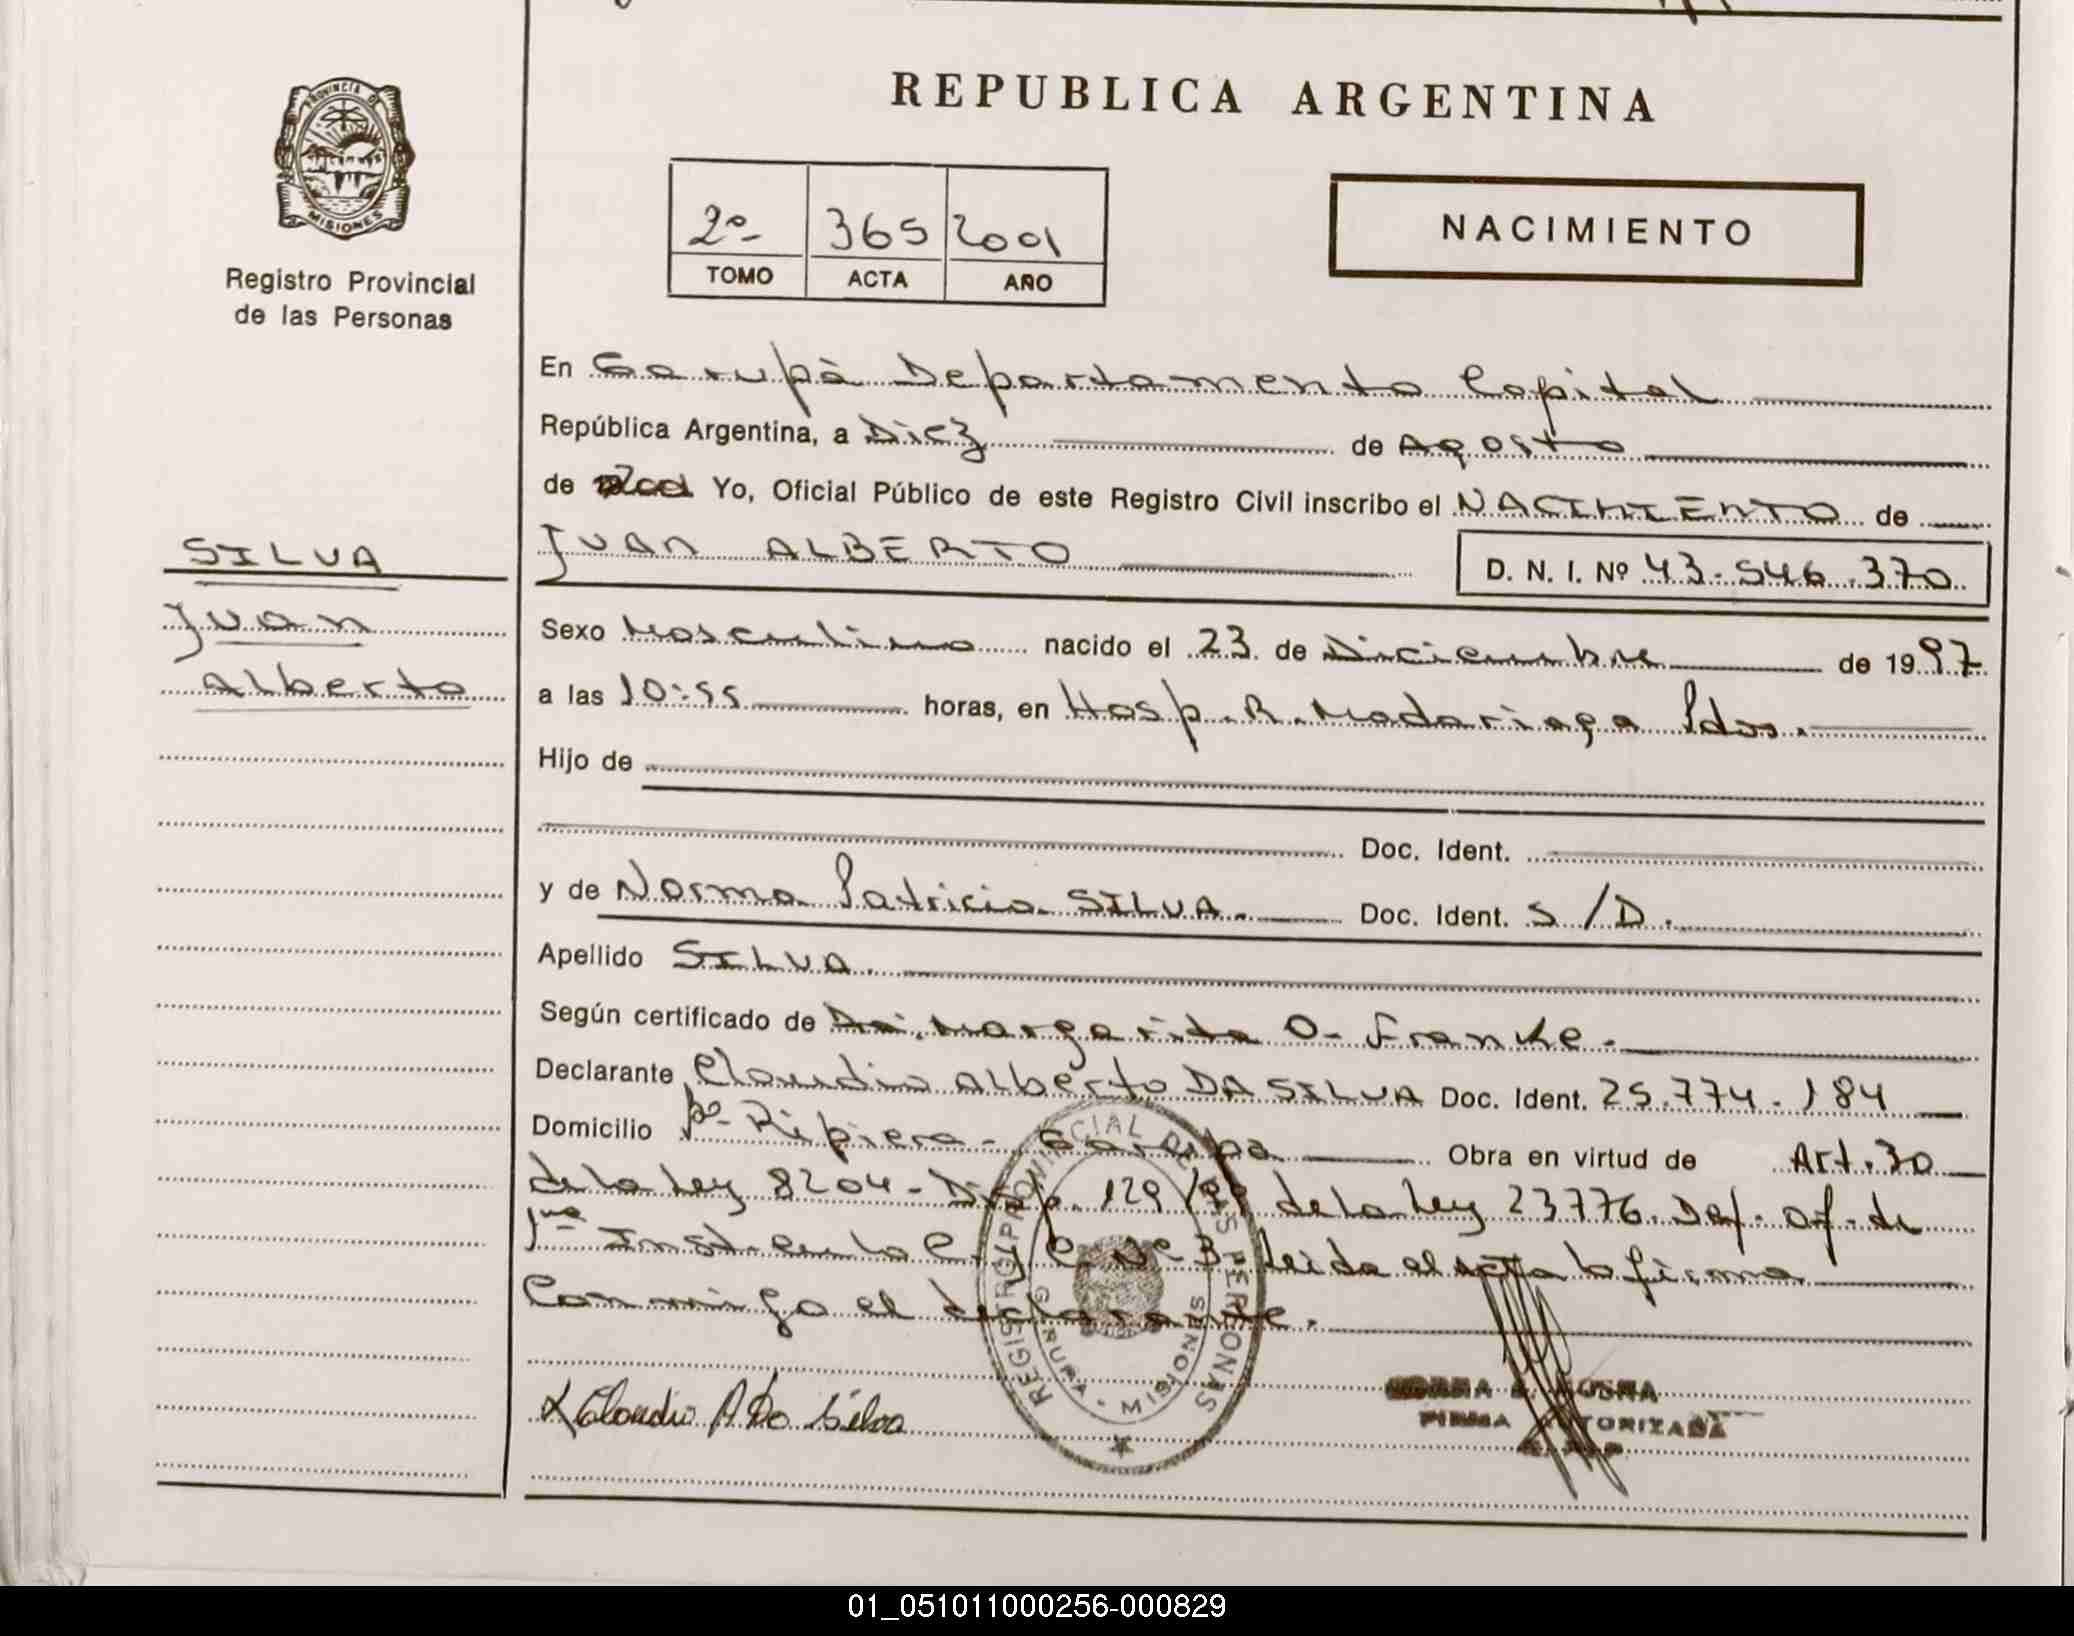 PROVINCIA DE
MISIONES
Registro Provincial
de las Personas
SILVA
Juan
Alberto
REPUBLICA ARGENTINA
2º 365 2001
TOMO ACTA AÑO
NACIMIENTO
En Garupá Departamento Capital
República Argentina, a Diez de Agosto
de Yo, Oficial Público de este Registro Civil inscribo el NACIMIENTO de
JUAN ALBERTO D. N. I. Nº 43.546.370
Sexo Masculino nacido el 23 de Diciembre de 1997
a las 10:55 horas, en Hosp. R. Madariaga Pdas.
Hijo de
Doc. Ident.
y de Norma Patricia SILVA. Doc. Ident. S/D.
Apellido SILVA.
Según certificado de Margarita O. Franke.
Declarante Claudio Alberto DA SILVA Doc. Ident. 25.774.184
Domicilio Bº Ripiera - Garupa Obra en virtud de Art. 30
de la Ley 8204 - Disp. 129/99 de la Ley 23776. Def. Of. de
1ra Inst. en lo C. y C. Nº 3 leida el acta la firma
Conmigo el declarante.
REGISTRO PROVINCIAL DE LAS PERSONAS
GARUPA - MISIONES
Claudio A. Da Silva
FIRMA AUTORIZADA
01_051011000256-000829